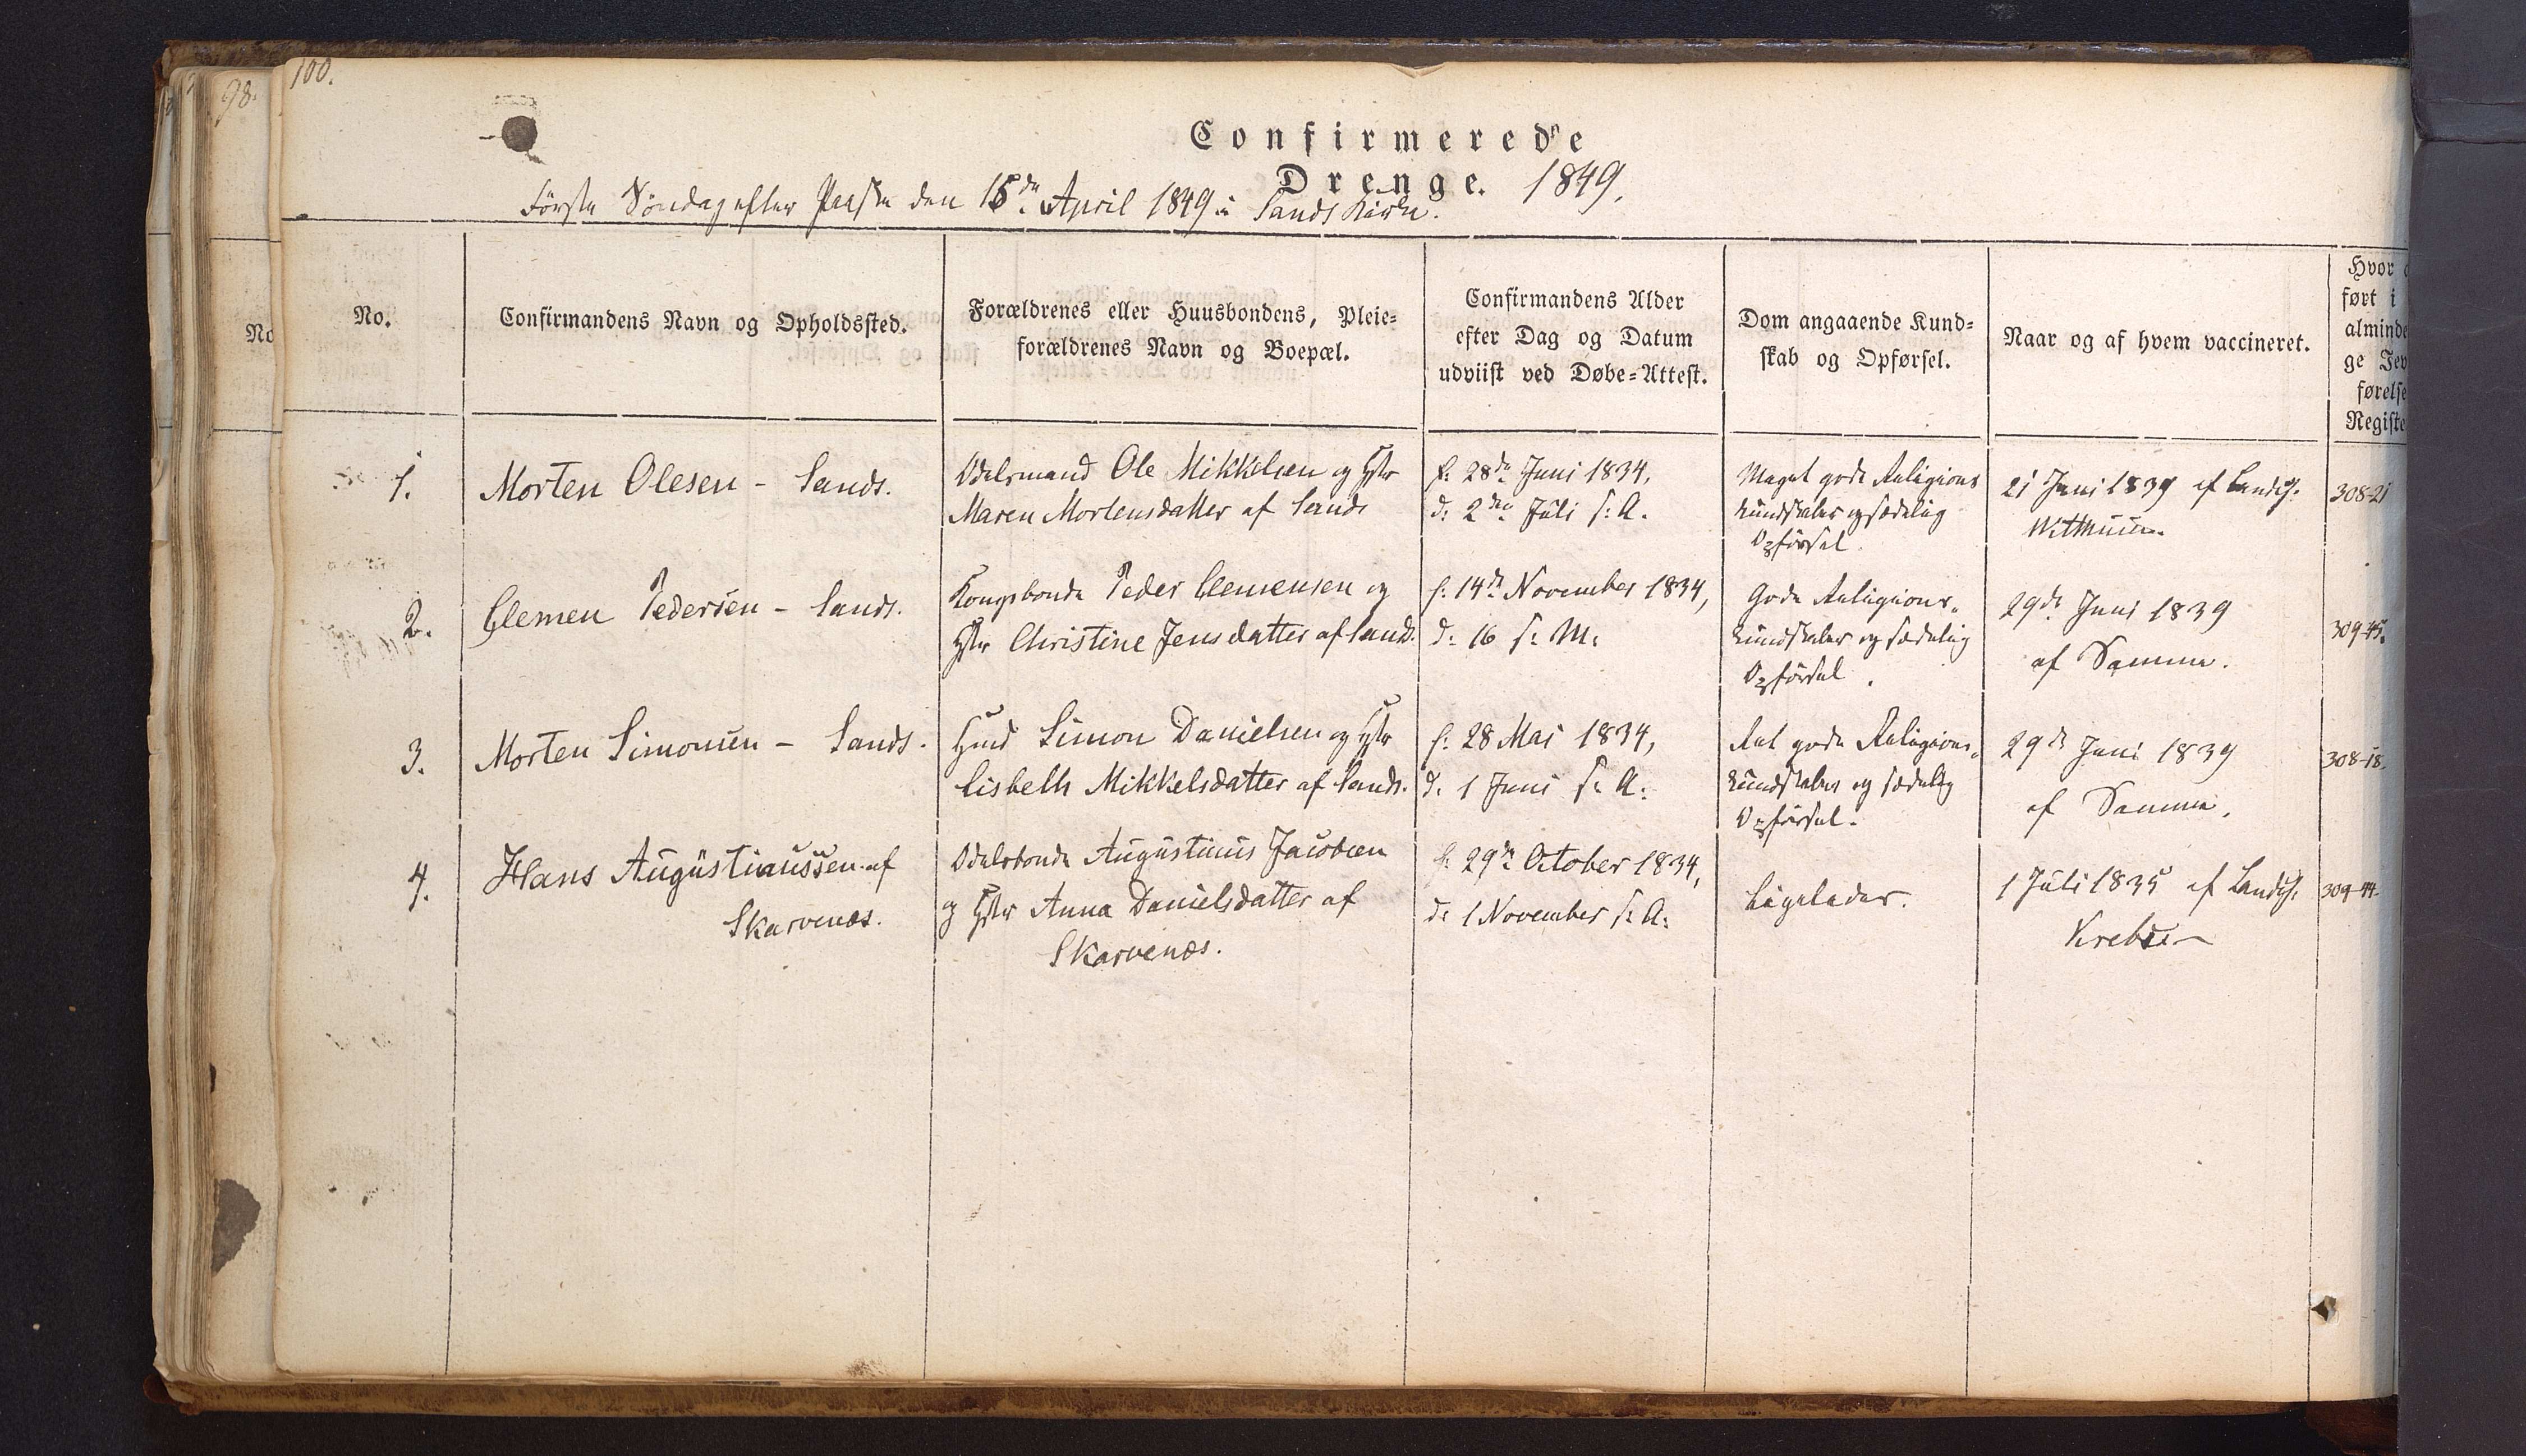 98.
100.
Confirmerede
Drenge. 1849.
Første Søndag efter Paaske den 15de April 1849 i Sands Kirke.
No
No.
Confirmandens Navn og Opholdssted.
Forældrenes eller Huusbondens, Pleie=
forældrenes Navn og Boepæl.
Confirmandens Alder
efter Dag og Datum
udviist ved Døbe=Attest.
Dom angaaende Kund=
skab og Opførsel.
Naar og af hvem vaccineret.
Hvor
ført i
alminde
ge Jev
førelse
Registe
1.
Morten Olesen - Sands.
Odelsmand Ole Mikkelsen og Hstr
Maren Mortensdatter af Sands
f. 28de Juni 1834,
d. 2den Juli s: A.
Meget gode Religions
kundskaber og sædelig
Opførsel.
21 Juni 1839 af Landch.
Witthusen.
308-21
2.
Clemen Pedersen - Sands.
Kongsbonde Peder Clemensen og
Hstr Christine Jensdatter af Sands.
f. 14de November 1834,
d. 16 s: M:
Gode Religions=
kundskaber og sædelig
Opførsel.
29de Juni 1839
af Samme.
309-45.
3.
Morten Simonsen - Sands.
Hmd Simon Danielsen og Hstr
Lisbeth Mikkelsdatter af Sands.
f. 28 Mai 1834,
d. 1 Juni s: A:
Ret gode Religions=
kundskaber og sædelig
Opførsel.
29de Juni 1839
af Samme.
308-18.
4.
Hans Augustinussen af
Skarvenæs.
Odelsbonde Augustinus Jacobsen
og Hstr Anna Danielsdatter af
Skarvenæs.
f. 29de October 1834,
d: 1 November s: A:
Ligeledes.
1 Juli 1835 af Landch.
Krebs
309-44.